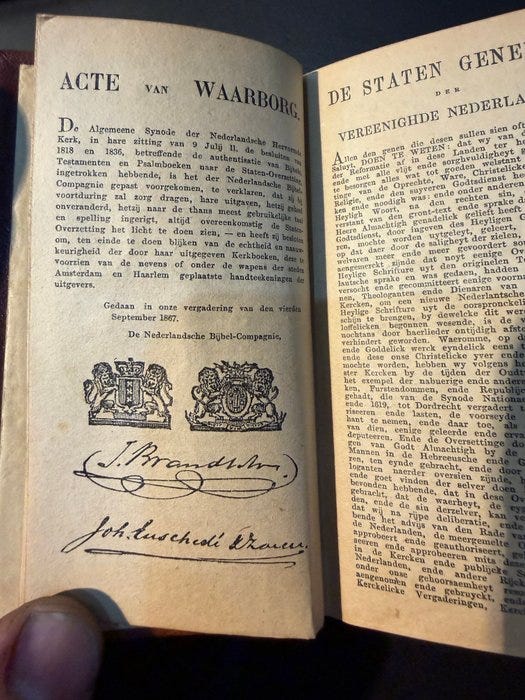 ACTE VAN WAARBORG.
De Algemeene Synode der Nederlandsche Hervormde
Kerk, in hare zitting van 9 Julij ll. de besluiten van
1818 en 1836, betreffende de authentisatie van Bijbels,
Testamenten en Psalmboeken naar de Staten-Overzetting,
ingetrokken hebbende, is het der Nederlandsche Bijbel-
Compagnie gepast voorgekomen, te verklaren, dat zij bij
voortduring zal zorg dragen, hare uitgaven, hetzij geheel
onveranderd, hetzij naar de thans meest gebruikelijke taal
en spelling ingerigt, altijd overeenkomstig de Staten-
Overzetting het licht te doen zien, — en heeft zij besloten
om, ten einde te doen blijken van de echtheid en nauw-
keurigheid der door haar uitgegeven Kerkboeken, deze te
voorzien van de nevens of onder de wapens der steden
Amsterdam en Haarlem geplaatste handteekeningen der
uitgevers.
Gedaan in onze vergadering van den vierden
September 1867.
De Nederlandsche Bijbel-Compagnie,
J. Brandt & Zn.
Joh. Enschedé & Zonen.
DE STATEN GENE
DER
VEREENIGHDE NEDERLA
Allen den genen die desen sullen sien ofte
Saluyt. DOEN TE WETEN: dat wy van
der Reformatie af in dese Landen ter
ende met alle vlijt ende sorghvuldigheyt
te besorgen alles tot Godes eere, ende
tinge van de Oprechte, Ware, Christelicke
Religie, ende den suyveren Godtsdienst
ken ende noodigh was: ende onder anderen
Heyligh Woorts, tot den rechten sin, ende
verstant van den gront-text ende spraken
Heere Almachtigh genadelick gelieft heeft
Godtsdienst, door ingeven des Heyligen
ren, mochte worden uytgeleyt, geleert,
op dat daer door de saligheyt der zielen,
welvaren meer ende meer gevordert soude
aengemerckt zijnde dat noyt eenige Over
Heylige Schrifture uyt den originelen Te
lantsche sprake en was gedaen, hadden
versocht ende gecommitteert eenige voor
nen, Theologanten ende Dienaren van
Kercken, om een nieuwe Nederlandtsche
Heylige Schrifture uyt de oorspronckelic
schijn te brengen, by dewelcke dit werck
loffelicken begonnen wesende, is de v
nochtans door haerlieder ontijdigh afsterven
verhindert geworden. Waeromme, op dat
ende Goddelick werck eyndelick eens t
ende dese onse Christelicke yver ende
mochte worden, hebben wy volgens he
ter Kercken by de tijden der Oudt
het exempel der nabuerige ende andere
ken, Furstendommen, ende Republijcken
gehadt, die van de Synode Nationael
ende 1619, tot Dordrecht vergadert t
viseren ende lasten, de voorsyde
hant te nemen, ende daer toe, als
van dien, eenige geleerde ende ervaren
deputeren. Ende de Oversettinge do
gen van Godt Almachtigh by de
Mannen in de Hebreeusche ende G
ren, ten eynde gebracht, ende door
loganten naerder oversien zijnde, h
ende goet vinden der selver doen
bevonden hebbende, dat in dese Ov
gebracht, dat de waerheyt, de eygen
den, ende de sin derzelver, kan
dat wy na rijpe deliberatie, ende
bende het advijs van den Rade van
de Nederlanden, de meergemelte O
approbeert ende geauthoriseert, gelijck
seeren ende approbeeren mits desen
in de Kercken ende publijcke Scholen
Nederlanden, ende andere Rijcken
onder onse gehoorsaemheyt resorterende
aengenomen ende gebruyckt, ende
Kerckelicke Vergaderingen, Kercken